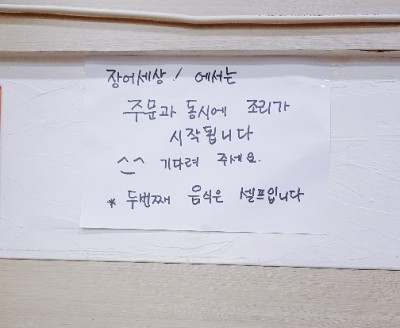 장어세상! 에서는
주문과 동시에 조리가
시작됩니다
^_^ 기다려 주세요.
* 두번째 음식은 셀프입니다